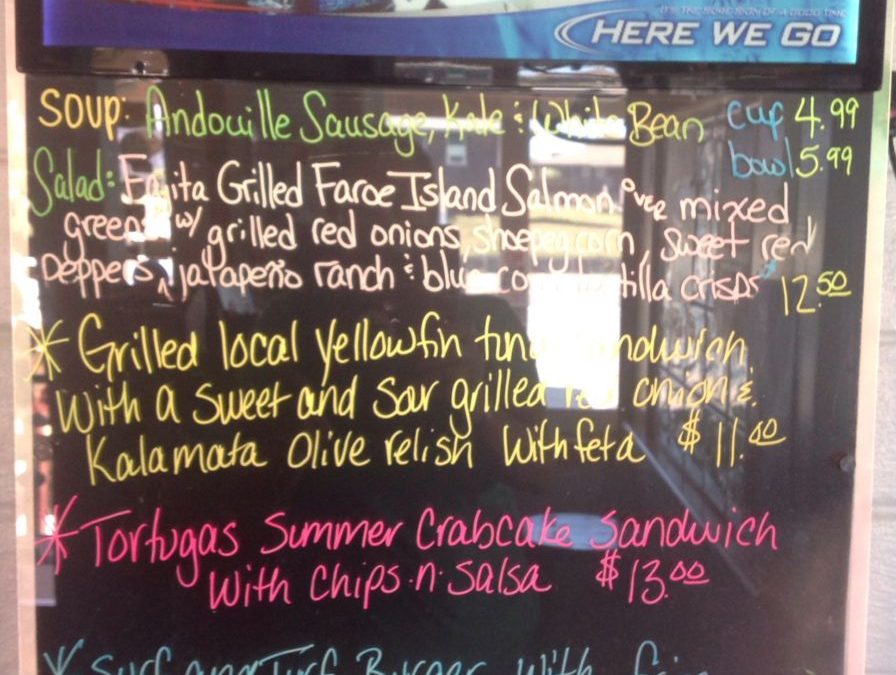 IT'S THE SURE SIGN OF A GOOD TIME
HERE WE GO
Soup: Andouille Sausage, Kale & White Bean cup 4.99
bowl 5.99
Salad: Fajita Grilled Faroe Island Salmon over mixed
greens w/ grilled red onions, shoepeg corn, sweet red
peppers, jalapeño ranch & blue corn tortilla crisps 12.50
* Grilled local yellowfin tuna sandwich
With a sweet and sour grilled red onion &
Kalamata Olive relish With feta $11.00
* Tortugas Summer Crabcake Sandwich
With Chips-n-Salsa $13.00
* Surf and Turf Burger With